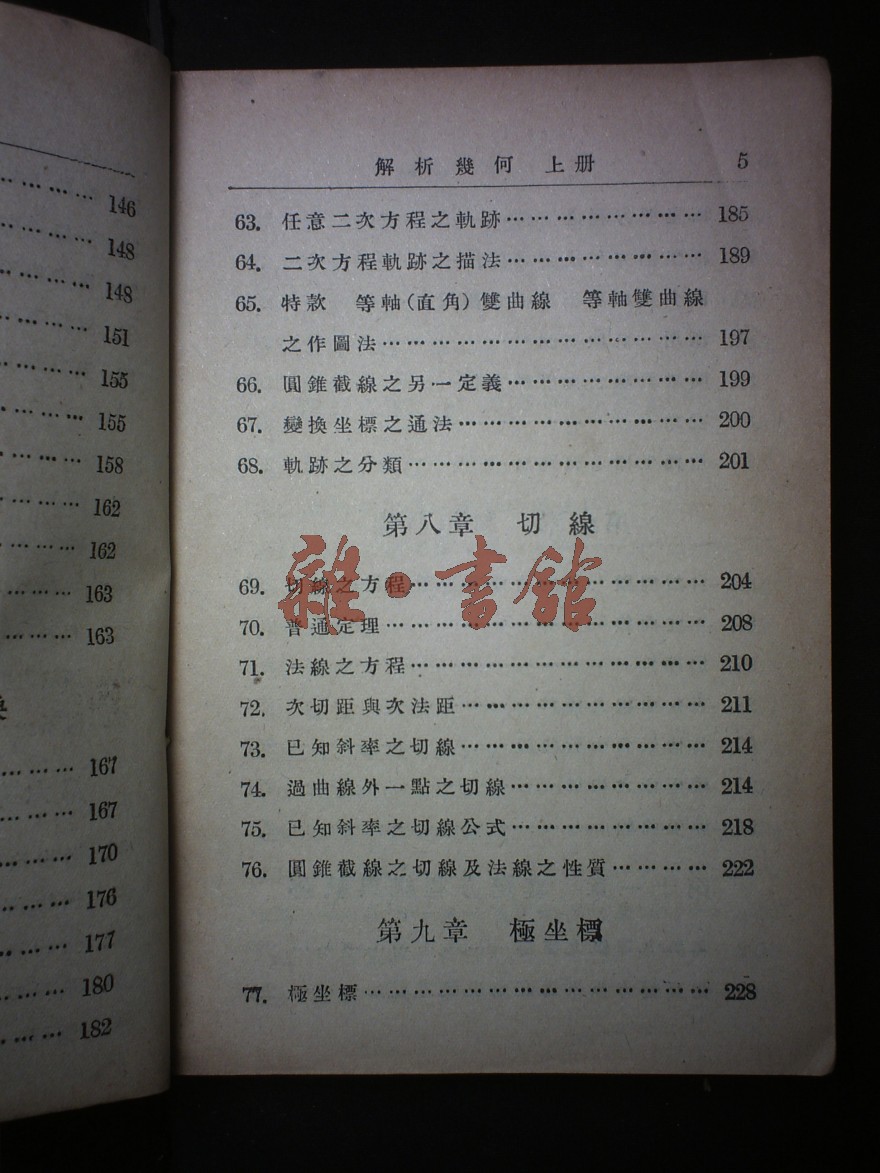 146
148
148
151
155
155
158
162
162
163
163
167
167
170
176
177
180
182
解析幾何 上册 5
63. 任意二次方程之軌跡 185
64. 二次方程軌跡之描法 189
65. 特款 等軸(直角)雙曲線 等軸雙曲線
之作圖法 197
66. 圓錐截線之另一定義 199
67. 變換坐標之通法 200
68. 軌跡之分類 201
第八章 切線
69. 切線之方程 204
70. 普通定理 208
71. 法線之方程 210
72. 次切距與次法距 211
73. 已知斜率之切線 214
74. 過曲線外一點之切線 214
75. 已知斜率之切線公式 218
76. 圓錐截線之切線及法線之性質 222
第九章 極坐標
77. 極坐標 228
雜·書館